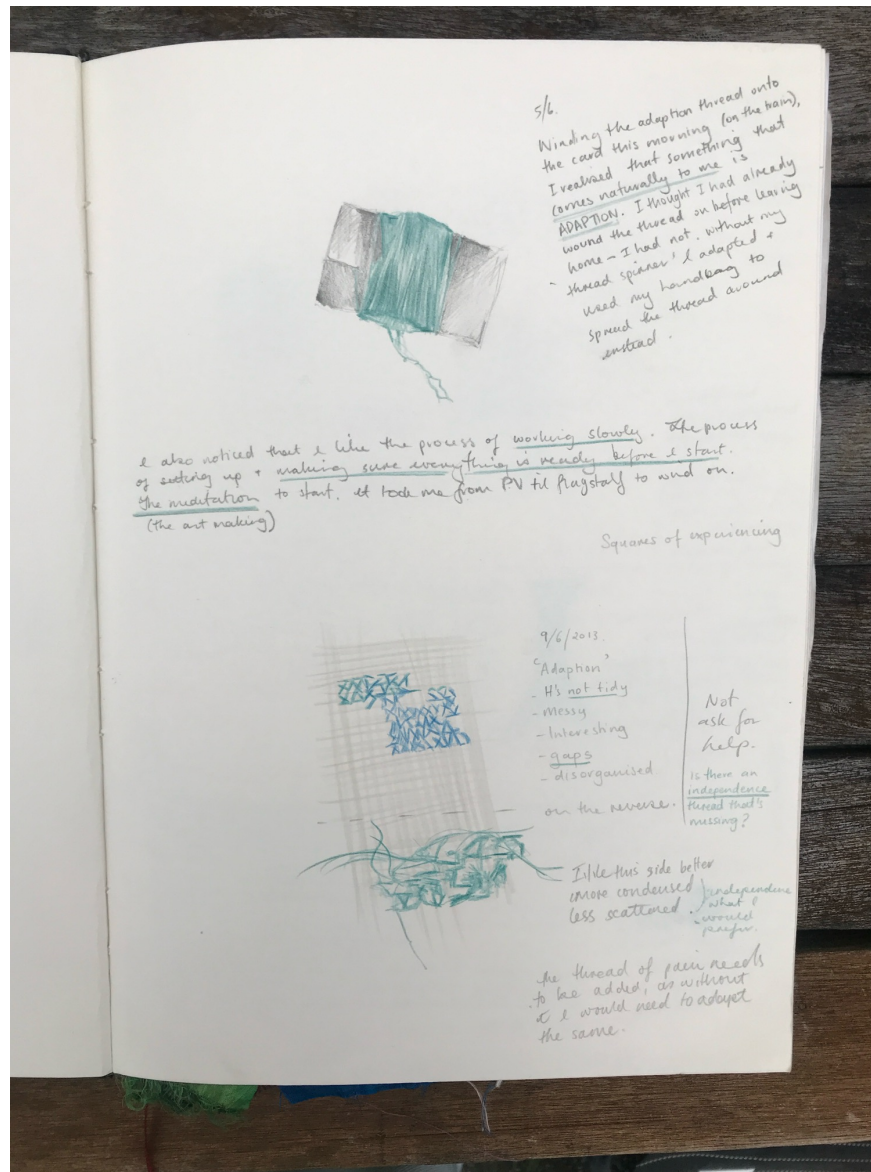 5/6.
Winding the adaption thread onto
the card this morning (on the train),
I realised that something that
comes naturally to me is
ADAPTION. I thought I had already
wound the thread on before leaving
home – I had not. without my
'thread spinner' I adapted +
used my handbag to
spread the thread around
instead.
I also noticed that I like the process of working slowly. The process
of setting up + making sure everything is ready before I start.
The meditation to start. It took me from PV til flagstaff to wind on.
(the art making)
Squares of experiencing
9/6/2013.
'Adaption'
- It's not tidy
- messy
- Interesting
- gaps
- disorganised
on the reverse.
Not
ask for
help.
Is there an
independence
thread that's
missing?
I like this side better
more condensed
less scattered.
independence
what I
would
prefer.
the thread of pain needs
to be added, as without
it I would need to adapt
the same.